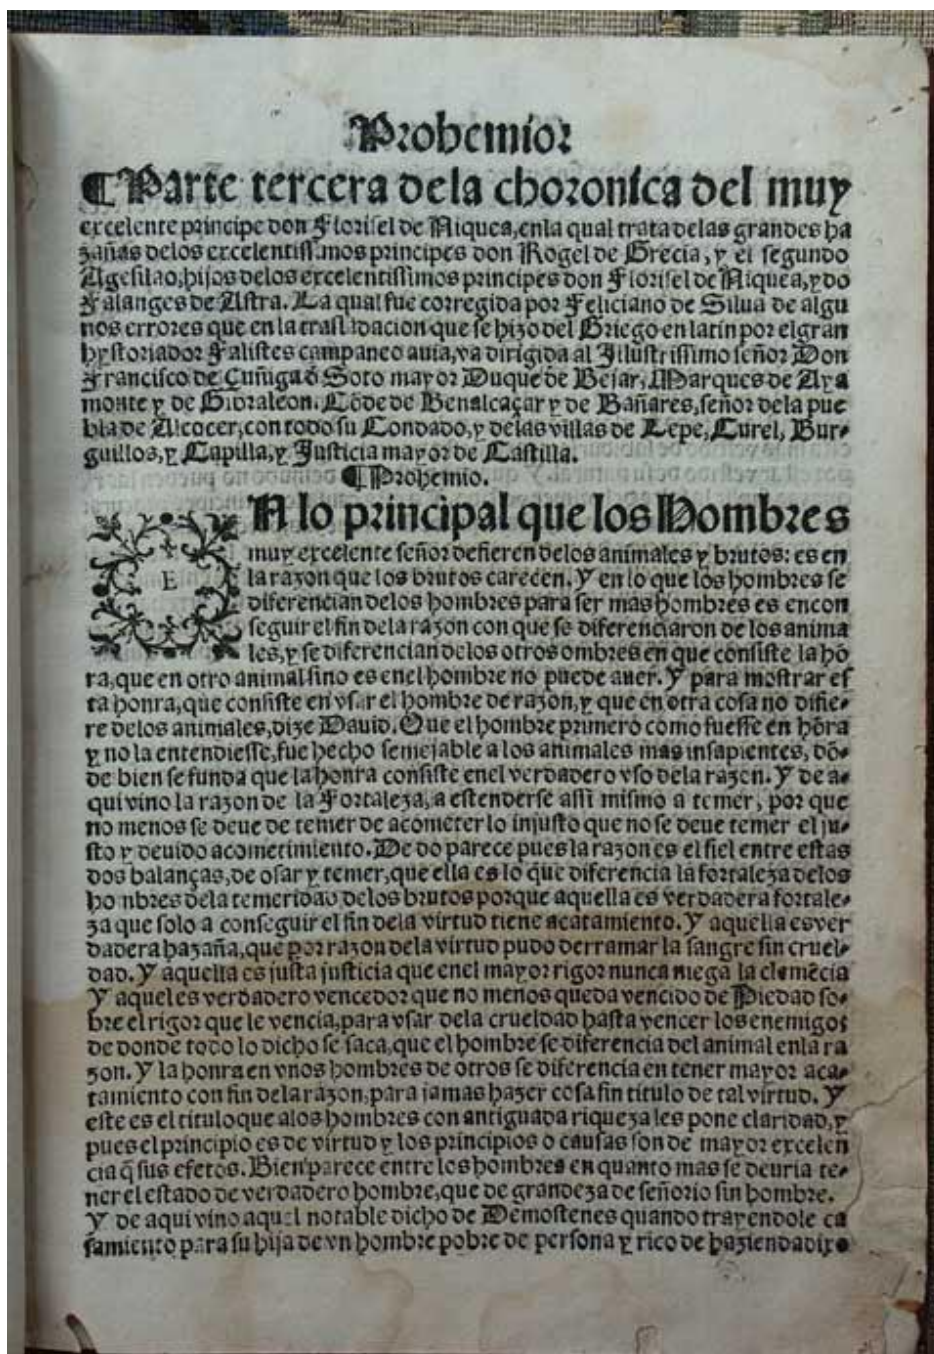 Prohemior
¶Parte tercera dela choronica del muy
excelente principe don Florisel de Niquea, enla qual trata delas grandes ha
zañas delos excelentissimos principes don Rogel de Grecia, y el segundo
Agesilao, hijos delos excelentissimos principes don Florisel de Niquea, y dō
Falanges de Astra. La qual fue corregida por Feliciano de Silua de algu
nos errores que en la trasladacion que se hizo del Griego en latin por el gran
hystoriador Falistes campaneo auia, va dirigida al Illustrissimo señor Don
Francisco de Çuñiga õ Soto mayor Duque de Bejar, Marques de Aya
monte y de Gibraleon. Cōde de Benalcaçar y de Bañares, señor dela pue
bla de Alcocer, con todo su Condado, y delas villas de Lepe, Curel, Bur-
guillos, y Capilla, y Justicia mayor de Castilla.
¶Prohemio.
E
N lo principal que los Hombres
muy excelente señor defieren delos animales y brutos: es en
la razon que los brutos carecen. Y en lo que los hombres se
diferencian delos hombres para ser mas hombres es encon
seguir el fin dela razon con que se diferenciaron de los anima
les, y se diferencian delos otros ombres en que consiste la hō
ra, que en otro animal sino es enel hombre no puede auer. Y para mostrar es
ta honra, que consiste en vsar el hombre de razon, y que en otra cosa no difie-
re delos animales, dize Dauid. Que el hombre primero como fuesse en hōra
y no la entendiesse, fue hecho semejable a los animales mas insapientes, dō-
de bien se funda que la honra consiste enel verdadero vso dela razon. Y de a-
qui vino la razon de la Fortaleza, a estenderse assi mismo a temer, por que
no menos se deue de temer de acometer lo injusto que no se deue temer el ju-
sto y deuido acometimiento. De do parece pues la razon es el fiel entre estas
dos balanças, de osar y temer, que ella es lo q̄ue diferencia la fortaleza delos
hombres dela temeridad delos brutos porque aquella es verdadera fortale-
za que solo a conseguir el fin dela virtud tiene acatamiento. Y aquella es ver
dadera hazaña, que por razon dela virtud pudo derramar la sangre sin cruel-
dad. Y aquella es justa justicia que enel mayor rigor nunca niega la clemēcia
Y aquel es verdadero vencedor que no menos queda vencido de Piedad so-
bre el rigor que le vencia, para vsar dela crueldad hasta vencer los enemigos
de donde todo lo dicho se saca, que el hombre se diferencia del animal enla ra
zon. Y la honra en vnos hombres de otros se diferencia en tener mayor aca-
tamiento con fin dela razon, para jamas hazer cosa sin titulo de tal virtud. Y
este es el titulo que alos hombres con antiguada riqueza les pone claridad, y
pues el principio es de virtud y los principios o causas son de mayor excelen
cia q̄ sus efetos. Bien parece entre los hombres en quanto mas se deuria te-
ner el estado de verdadero hombre, que de grandeza de señorio sin hombre.
Y de aqui vino aquel notable dicho de Demostenes quando trayendole ca
samiento para su hija de vn hombre pobre de persona y rico de hazienda dixo